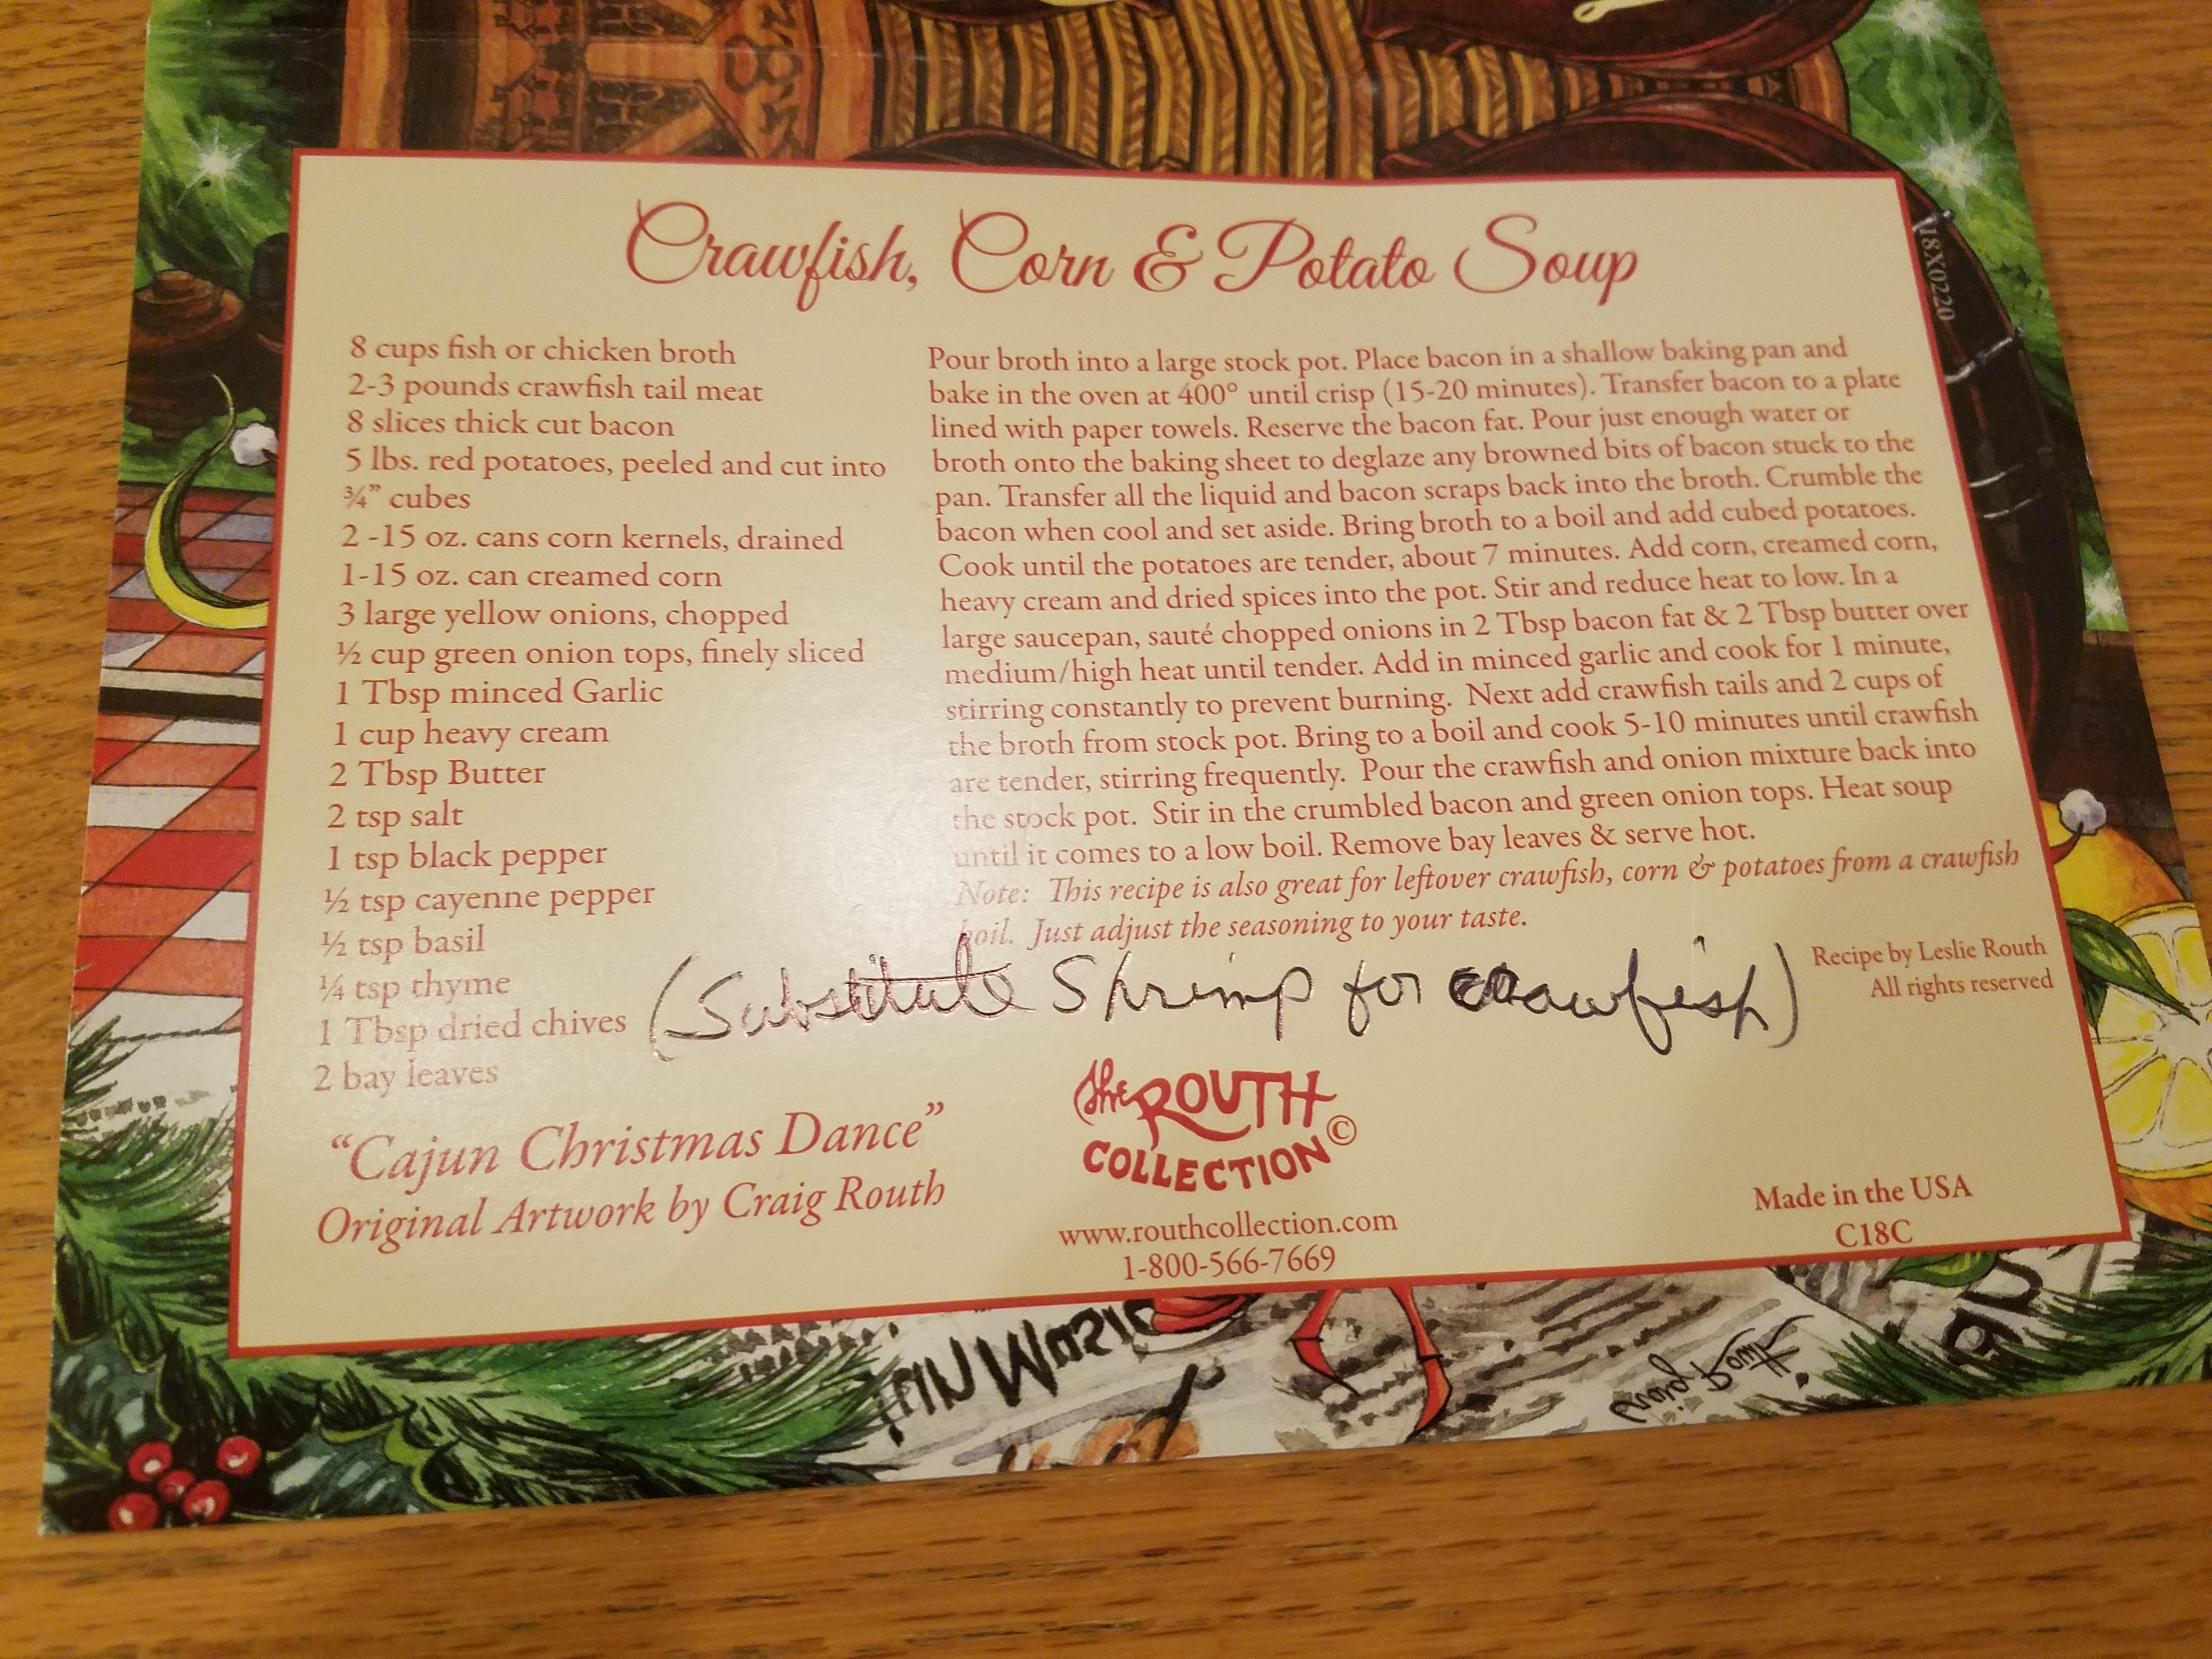 Crawfish, Corn & Potato Soup
8 cups fish or chicken broth
2-3 pounds crawfish tail meat
8 slices thick cut bacon
5 lbs. red potatoes, peeled and cut into
¾” cubes
2 -15 oz. cans corn kernels, drained
1-15 oz. can creamed corn
3 large yellow onions, chopped
½ cup green onion tops, finely sliced
1 Tbsp minced Garlic
1 cup heavy cream
2 Tbsp Butter
2 tsp salt
1 tsp black pepper
½ tsp cayenne pepper
½ tsp basil
¼ tsp thyme
1 Tbsp dried chives
2 bay leaves
Pour broth into a large stock pot. Place bacon in a shallow baking pan and
bake in the oven at 400° until crisp (15-20 minutes). Transfer bacon to a plate
lined with paper towels. Reserve the bacon fat. Pour just enough water or
broth onto the baking sheet to deglaze any browned bits of bacon stuck to the
pan. Transfer all the liquid and bacon scraps back into the broth. Crumble the
bacon when cool and set aside. Bring broth to a boil and add cubed potatoes.
Cook until the potatoes are tender, about 7 minutes. Add corn, creamed corn,
heavy cream and dried spices into the pot. Stir and reduce heat to low. In a
large saucepan, sauté chopped onions in 2 Tbsp bacon fat & 2 Tbsp butter over
medium/high heat until tender. Add in minced garlic and cook for 1 minute,
stirring constantly to prevent burning. Next add crawfish tails and 2 cups of
the broth from stock pot. Bring to a boil and cook 5-10 minutes until crawfish
are tender, stirring frequently. Pour the crawfish and onion mixture back into
the stock pot. Stir in the crumbled bacon and green onion tops. Heat soup
until it comes to a low boil. Remove bay leaves & serve hot.
Note: This recipe is also great for leftover crawfish, corn & potatoes from a crawfish
boil. Just adjust the seasoning to your taste.
(Substitute Shrimp for crawfish)
Recipe by Leslie Routh
All rights reserved
“Cajun Christmas Dance”
Original Artwork by Craig Routh
the ROUTH
COLLECTION©
www.routhcollection.com
1-800-566-7669
Made in the USA
C18C
18X0220